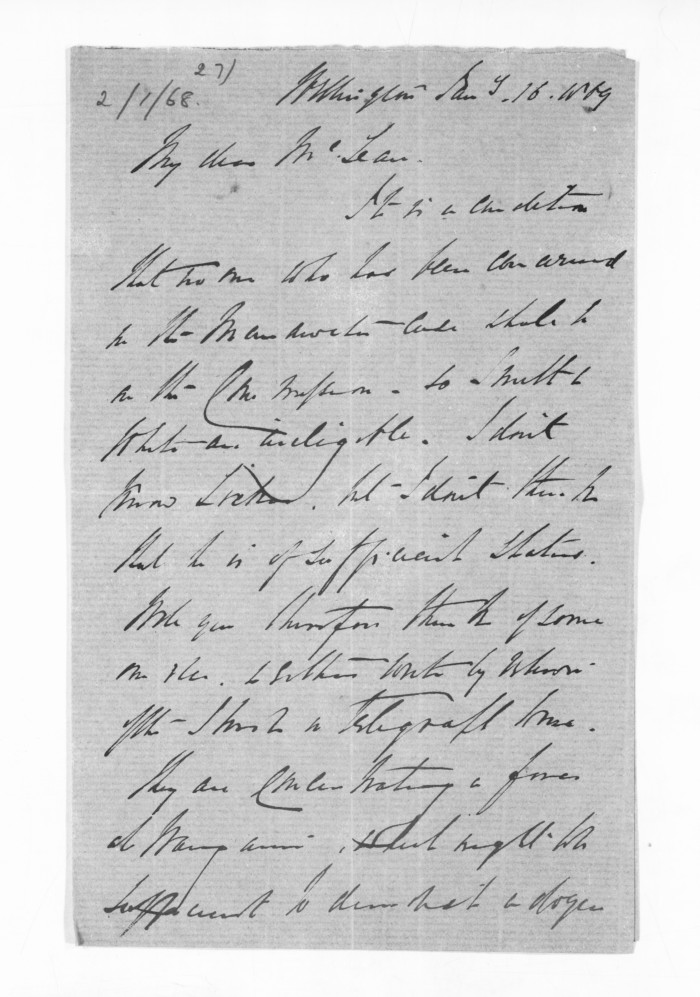 27/
2/1/68.
Wellington Jany. 16. 1869
My dear McLean.
It is a condition
that no one who has been concerned
in the case shall be
on the Commission - so Smith &
White are ineligible. I don't
know Locke, but I don't think
that he is of sufficient status.
Will you therefore think of some
one else. & either write by
or telegraph
They are concentrating a force
at Wanganui which might be
sufficient to a dozen